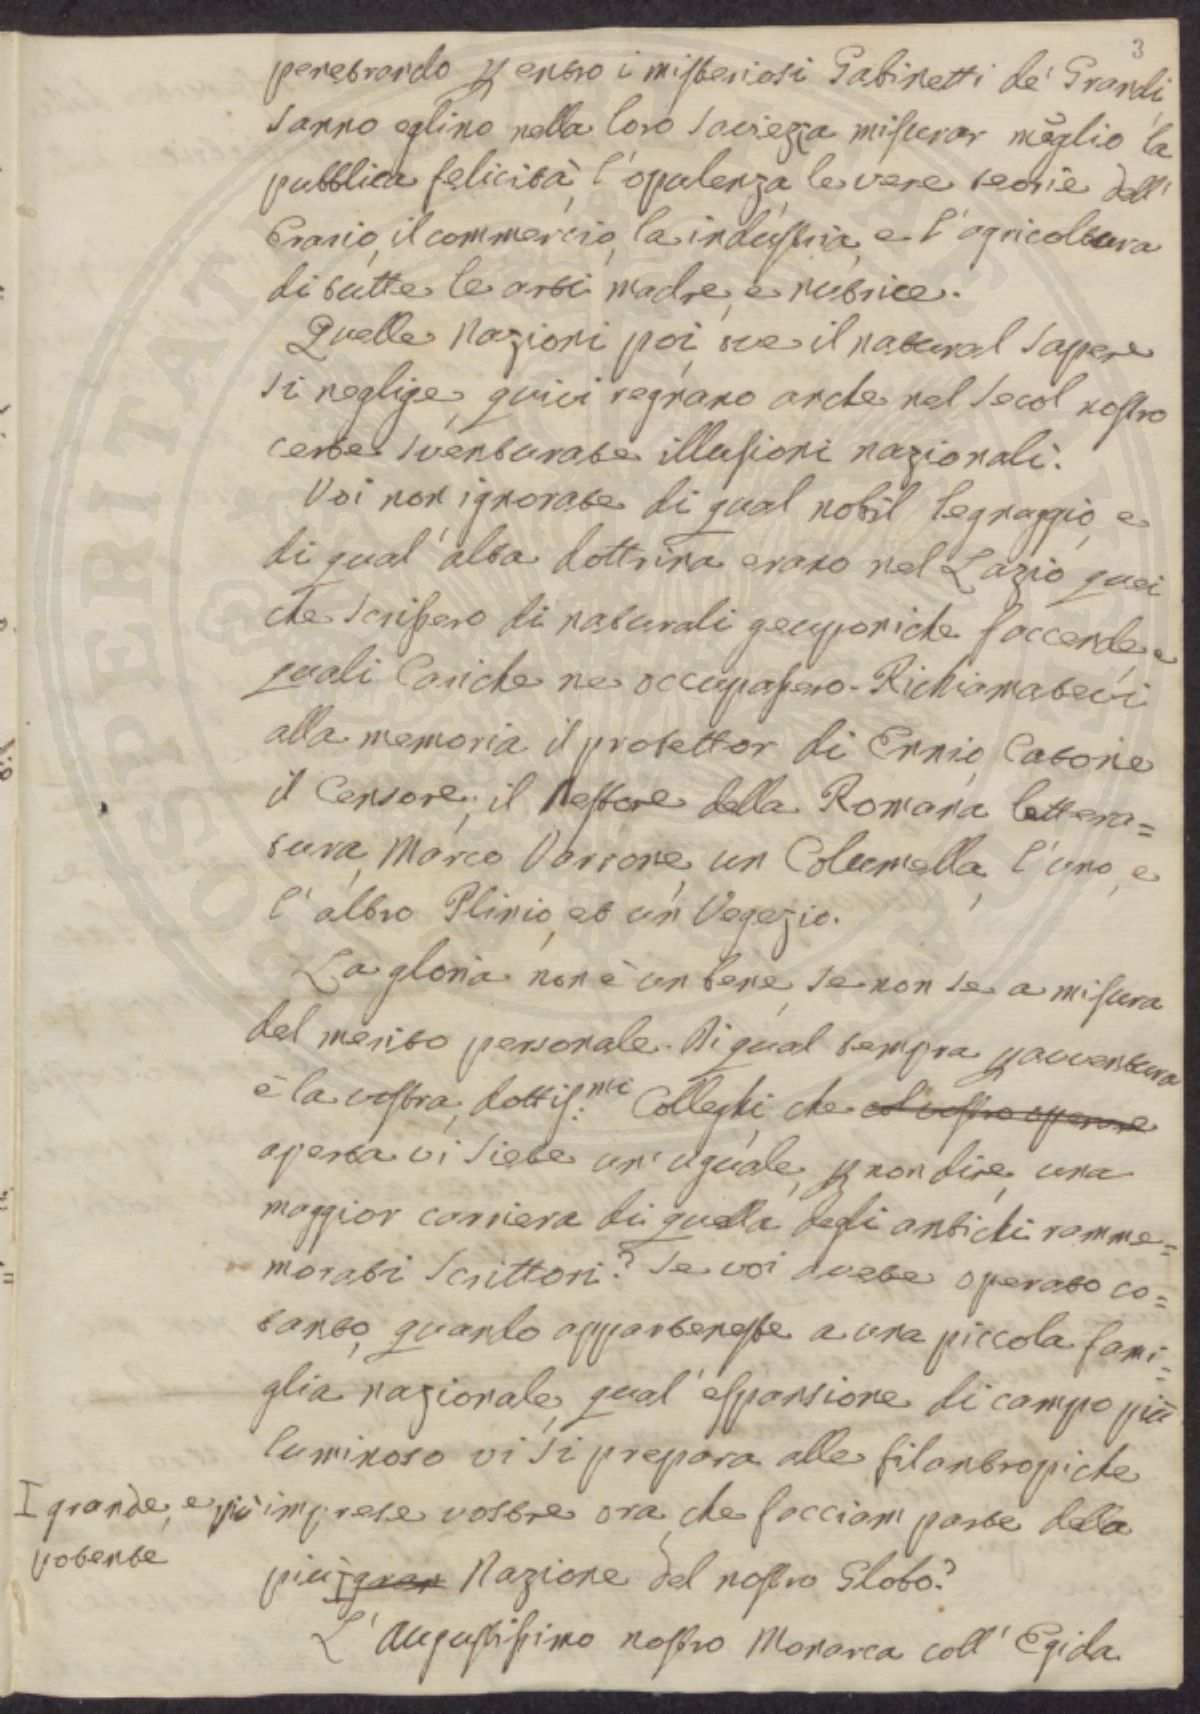 3
penetrando p entro i misteriosi Gabinetti de' Grandi,
sanno eglino nella loro saviezza misurar meglio la
pubblica felicità, l'opulenza, le vere teorie dell'
Erario, il commercio, la industria, e l'agricoltura
di tutte le arti madre, e nutrice.
Quelle Nazioni poi, ove il natural sapere
si neglige, quivi regnano anche nel secol nostro
certe sventurate illusioni nazionali.
Voi non ignorate di qual nobil legnaggio, e
di qual' alta dottrina erano nel Lazio quei
che scrissero di naturali geoponiche faccende, e
quali Cariche ne occupassero. Richiamatevi
alla memoria il protettor di Ennio, Catone
il Censore, il Nestore della Romana lettera=
tura, Marco Varrone, un Columella, l'uno, e
l'altro Plinio, et un Vegezio.
La gloria non è un bene, se non se a misura
del merito personale. Di qual tempra p avventura
è la vostra, dottiss:mi Colleghi, che col vostro operare
aperta vi siete un'uguale, p non dire, una
maggior carriera di quella degli antichi ramme=
morati Scrittori? Se voi avete operato co=
tanto, quando apparteneste a una piccola fami=
glia nazionale, qual' espansione di campo più
luminoso vi si prepara alle filantropiche
imprese vostre ora, che facciam parte della
più gran Nazione del nostro Globo?
I grande, e più
potente
L'Augustissimo nostro Monarca coll' Egida
SOSPERITATI